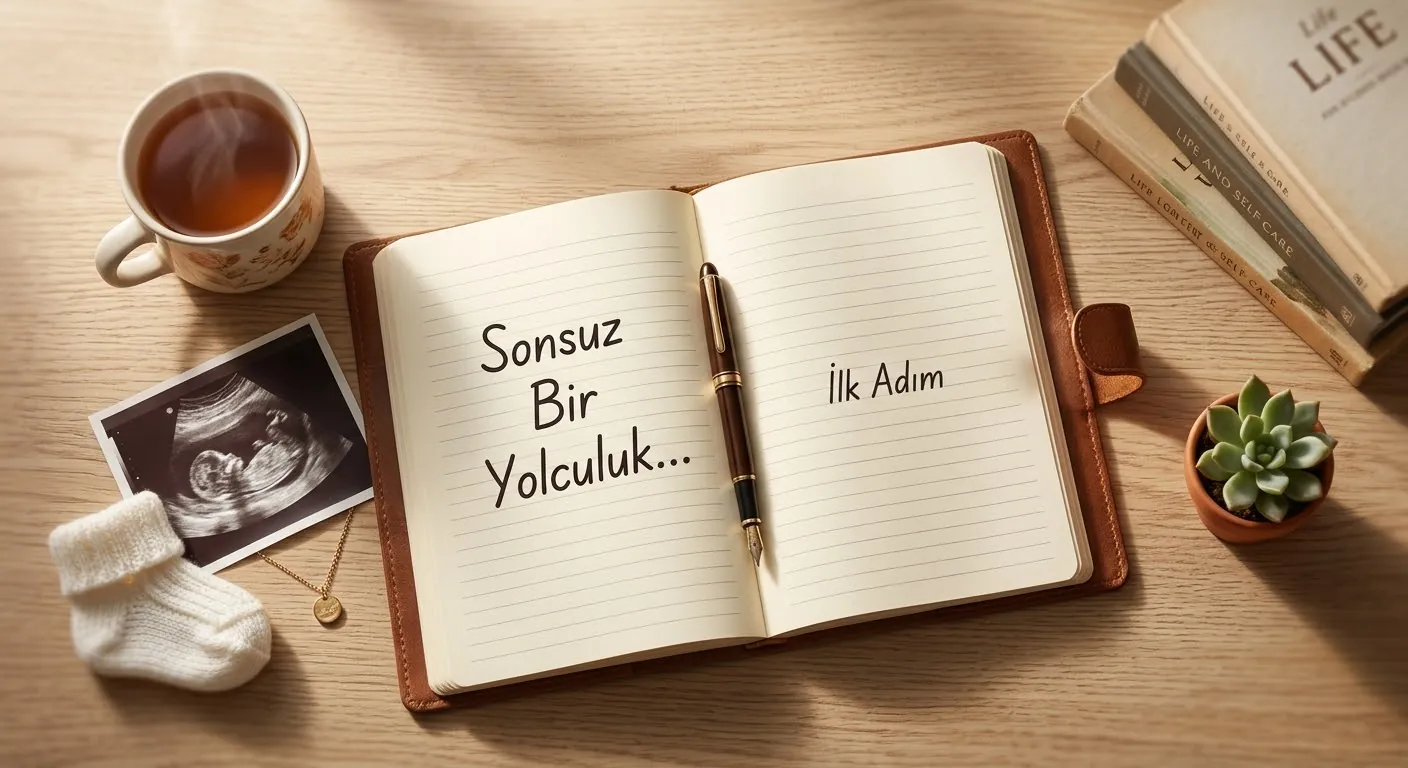 Sonsuz
Bir
Yolculuk...
İlk Adım
Life
LIFE
LIFE & SELF CARE
LIFE AND SELF CARE